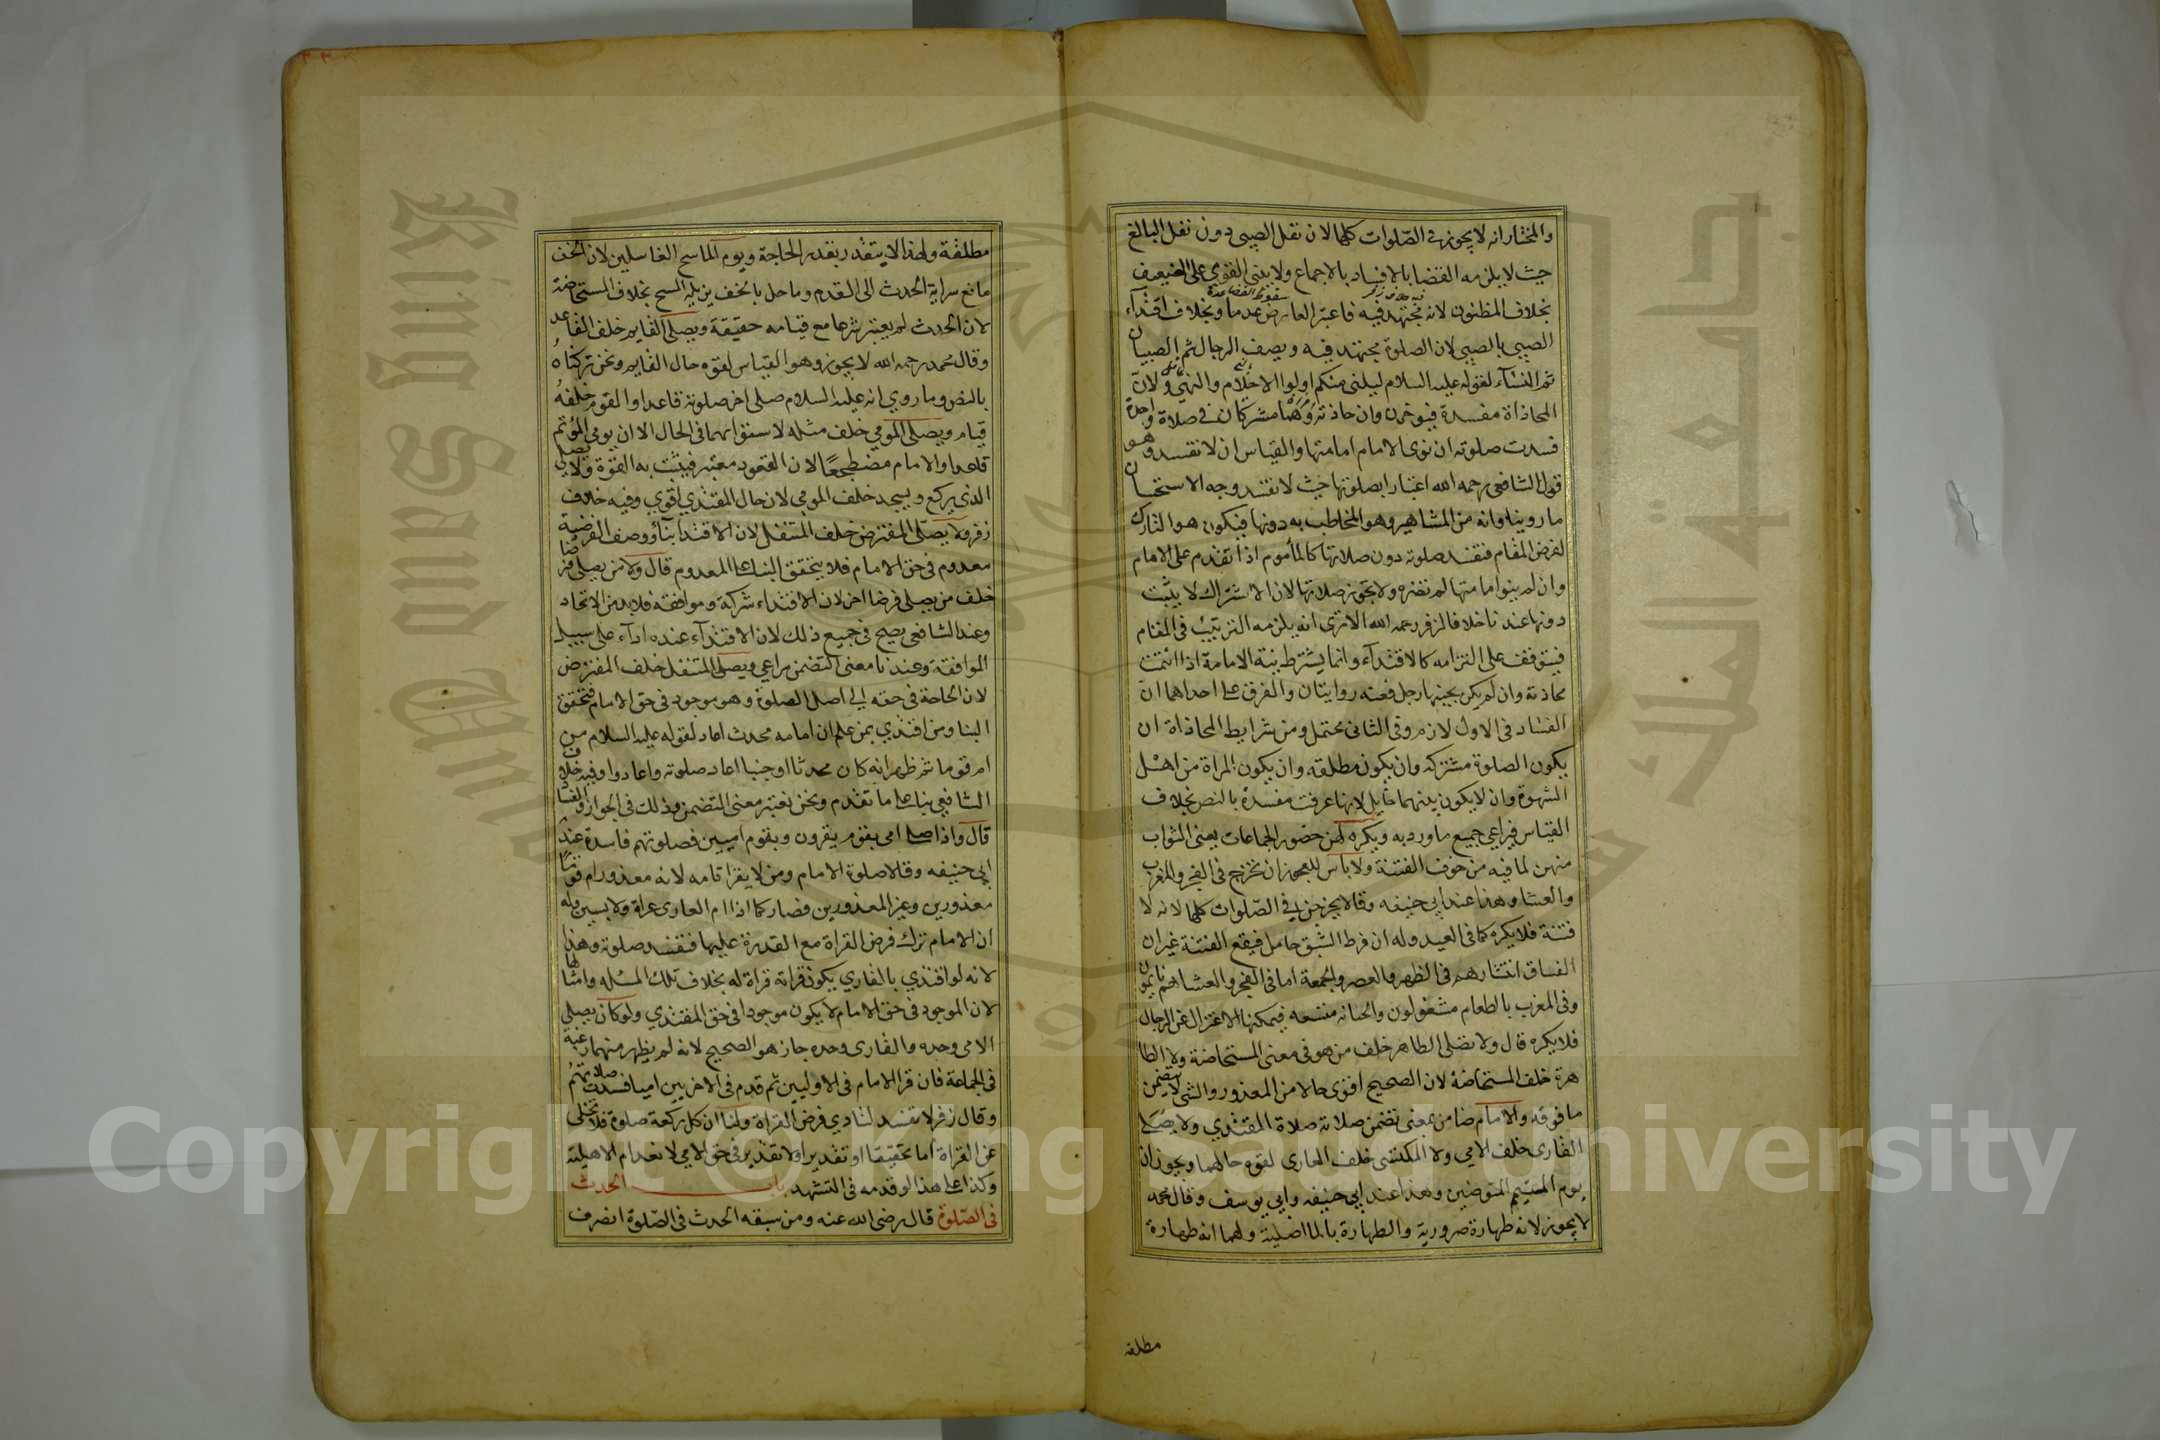 والمختار انه لا يجوز في الصلوات كلها لان نفل الصبي دون نفل البالغ
حيث لا يلزمه القضا بالافساد بالاجماع ولا يبنى القوي على الضعيف
بخلاف المظنون لانه مجتهد فيه فاعتبر العارض عدما وبخلاف اقتداء
الصبي بالصبي لان الصلوة مجتهد فيه ويصف الرجال ثم الصبيان
ثم النساء لقوله عليه السلام ليلنى منكم اولوا الاحلام والنهي ولان
المحاذاة مفسدة فيوخرن وان حاذته وهما مشتركان في صلاة واحدة
فسدت صلوته ان نوى الامام امامتها والقياس ان لا تفسد وهو
قول الشافعي رحمه الله اعتبارا بصلوتها حيث لا تفسد وجه الاستحسان
ما رويناه وانه من المشاهير وهو المخاطب به دونها فيكون هو التارك
لفرض المقام فتفسد صلوته دون صلاتها كالمأموم اذا تقدم على الامام
وان لم ينو امامتها لم تضره ولا تجوز صلاتها لان الاشتراك لا يثبت
دونها عندنا خلافا لزفر رحمه الله الا ترى انه يلزمه الترتيب في المقام
فيتوقف على التزامه كالاقتداء وانما يشترط نية الامامة اذا ائتمت
محاذته وان لم يكن بجنبها رجل ففيه روايتان والفرق على احداهما ان
الفساد في الاول لازم وفي الثاني محتمل ومن شرايط المحاذاة ان
يكون الصلوة مشتركة وان يكون مطلقه وان يكون المراة من اهل
الشهوة وان لا يكون بينهما حايل لانها عرفت مفسدة بالنص بخلاف
القياس فيراعي جميع ما ورد به ويكره لهن حضور الجماعات يعنى الشواب
منهن لما فيه من خوف الفتنة ولا باس للعجوز ان تخرج في الفجر والمغرب
والعشا وهذا عند ابي حنيفه وقالا يخرجن في الصلوات كلها لانه لا
فتنة فلا يكره كما في العيد وله ان فرط الشبق حامل فيقع الفتنة غير ان
الفساق انتشارهم في الظهر والعصر والجمعة اما في الفجر والعشا هم نايمون
وفي المغرب بالطعام مشغولون والجبانه متسعه فيمكنها الاعتزال عن الرجال
فلا يكره قال ولا تصلى الطاهر خلف من هو في معنى المستحاضة ولا الطا
هرة خلف المستحاضة لان الصحيح اقوى حالا من المعذور والشي لا يتضمن
ما فوقه والامام ضامن بمعنى تضمن صلاته صلاة المقتدي ولا يصلى
القارى خلف الامي ولا المكتسى خلف العارى لقوة حالهما ويجوز ان
يوم المتيمم المتوضين وهذا عند ابي حنيفه وابي يوسف وقال محمد
لا يجوز لانه طهارة ضرورية والطهارة بالما اصلية ولهما انه طهارة
مطلقه
مطلقة ولهذا لا يتقدر بقدر الحاجة ويوم الماسح الغاسلين لان الخف
مانع سراية الحدث الى القدم وما حل بالخف يزيله المسح بخلاف المستحاضة
لان الحدث لم يعتبر شرعا مع قيامه حقيقة ويصلى القايم خلف القاعد
وقال محمد رحمه الله لا يجوز وهو القياس لقوة حال القايم ونحن تركناه
بالنص وما روي انه عليه السلام صلى اخر صلوته قاعدا والقوم خلفه
قيام ويصلى المومي خلف مثله لاستوائهما في الحال الا ان يومي المؤتم
قاعدا والامام مضطجعا لان القعود معتبر فيثبت به القوة ولا يصلي
الذي يركع ويسجد خلف المومي لان حال المقتدي اقوي وفيه خلاف
زفر ولا يصلى المفترض خلف المتنفل لان الاقتدا بناء ووصف الفرضية
معدوم في حق الامام فلا يتحقق البناء على المعدوم قال ولا من يصلي فرضا
خلف من يصلى فرضا اخر لان الاقتداء شركة وموافقة فلا بد من الاتحاد
وعند الشافعي يصح في جميع ذلك لان الاقتداء عنده اداء على سبيل
الموافقة وعندنا معنى التضمن مراعي ويصلى المتنفل خلف المفترض
لان الحاجة في حقه الى اصل الصلوة وهو موجود في حق الامام فتحقق
البنا ومن اقتدي بمن علم ان امامه محدث اعاد لقوله عليه السلام من
ام قوما ثم ظهر انه كان محدثا او جنبا اعاد صلوته واعادوا وفيه خلاف
الشافعي بناء على ما تقدم ونحن نعتبر معنى التضمن وذلك في الجواز والفساد
قال واذا صلى امي بقوم يقرون وبقوم اميين فصلوتهم فاسدة عند
ابي حنيفه وقالا صلوة الامام ومن لا يقرا تامه لانه معذور ام قوما
معذورين وغير المعذورين فصار كما اذا ام العارى عراة ولابسين وله
ان الامام ترك فرض القراة مع القدرة عليها فتفسد صلوته وهذا
لانه لو اقتدي بالقاري يكون قراته قراة له بخلاف تلك المسله وامثالها
لان الموجود في حق الامام لا يكون موجودا في حق المقتدي ولو كان يصلي
الامي وحده والقارى وحده جاز هو الصحيح لانه لم يظهر منهما رغبة
في الجماعة فان قرا الامام في الاوليين ثم قدم في الاخريين اميا فسدت صلاتهم
وقال زفر لا تفسد لتادي فرض القراة ولنا ان كل ركعة صلوة فلا تخلى
عن القراة اما تحقيقا او تقديرا ولا تقدير في حق الامي لانعدام الاهلية
وكذا على هذا لو قدمه في التشهد باب الحدث
في الصلوة قال رضى الله عنه ومن سبقه الحدث في الصلوة انصرف
King Saud University
جامعة الملك سعود
1957
Copyright © King Saud University